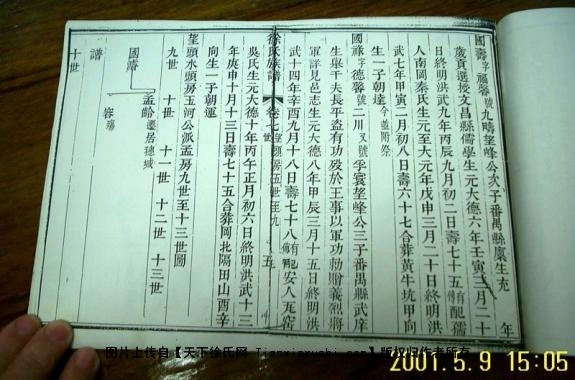 國壽字福馨號九疇望峰公次子番禺縣廩生充
歲貢選授文昌縣儒學生元大德六年壬寅三月二十
日終明洪武九年丙辰九月初二日壽七十五有傳配孺
人南岡秦氏生元至大元年戊申三月二十日終明洪
武七年甲寅二月初八日壽六十七合葬黃牛坑甲向
生一子朝達今蓋附祭
國祿字德馨號二川又號孚寰望峰公三子番禺縣武庠
生舉千夫長平盜有功歿於王事以軍功勅贈義烈將
軍詳見邑志生元大德八年甲辰三月十五日終明洪
武十四年辛酉九月十八日壽七十八有傳配安人瓦窑
徐氏族譜 卷七 望頭房五世至九世 五
吳氏生元大德十年丙午正月初六日終明洪武十三
年庚申十月十三日壽七十五合葬岡北陽田山酉辛
向生一子朝運
望頭水頭房玉河公派孟房九世至十三世圖
九世 十世 十一世 十二世 十三世
國祿 孟韜遷居穗城 容陽
譜
十世
年
图片上传自【天下徐氏网 Tianxiaxushi.com】版权归作者所有
2001.5.9 15:05